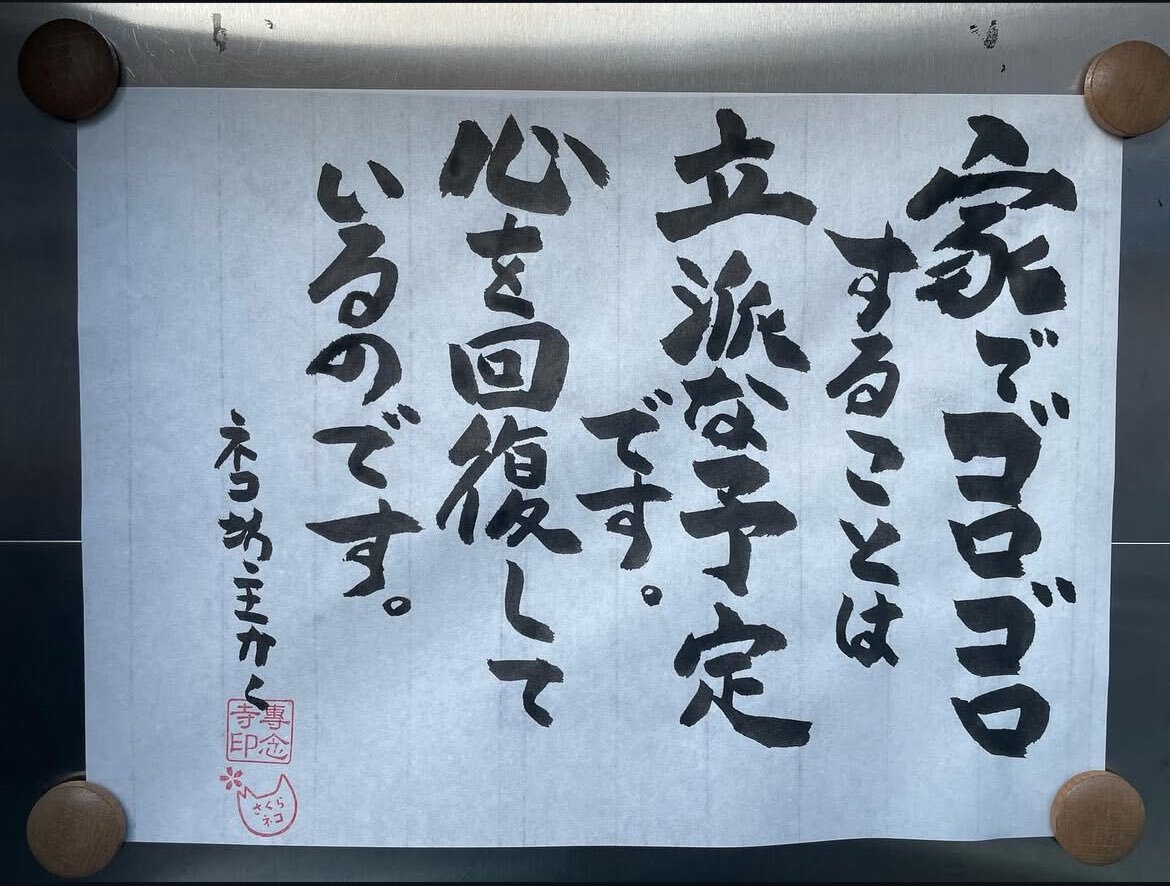 家でゴロゴロ
することは
立派な予定
です。
心を回復して
いるのです。
ネコ坊主かく
專念
寺印
さくら
ネコ